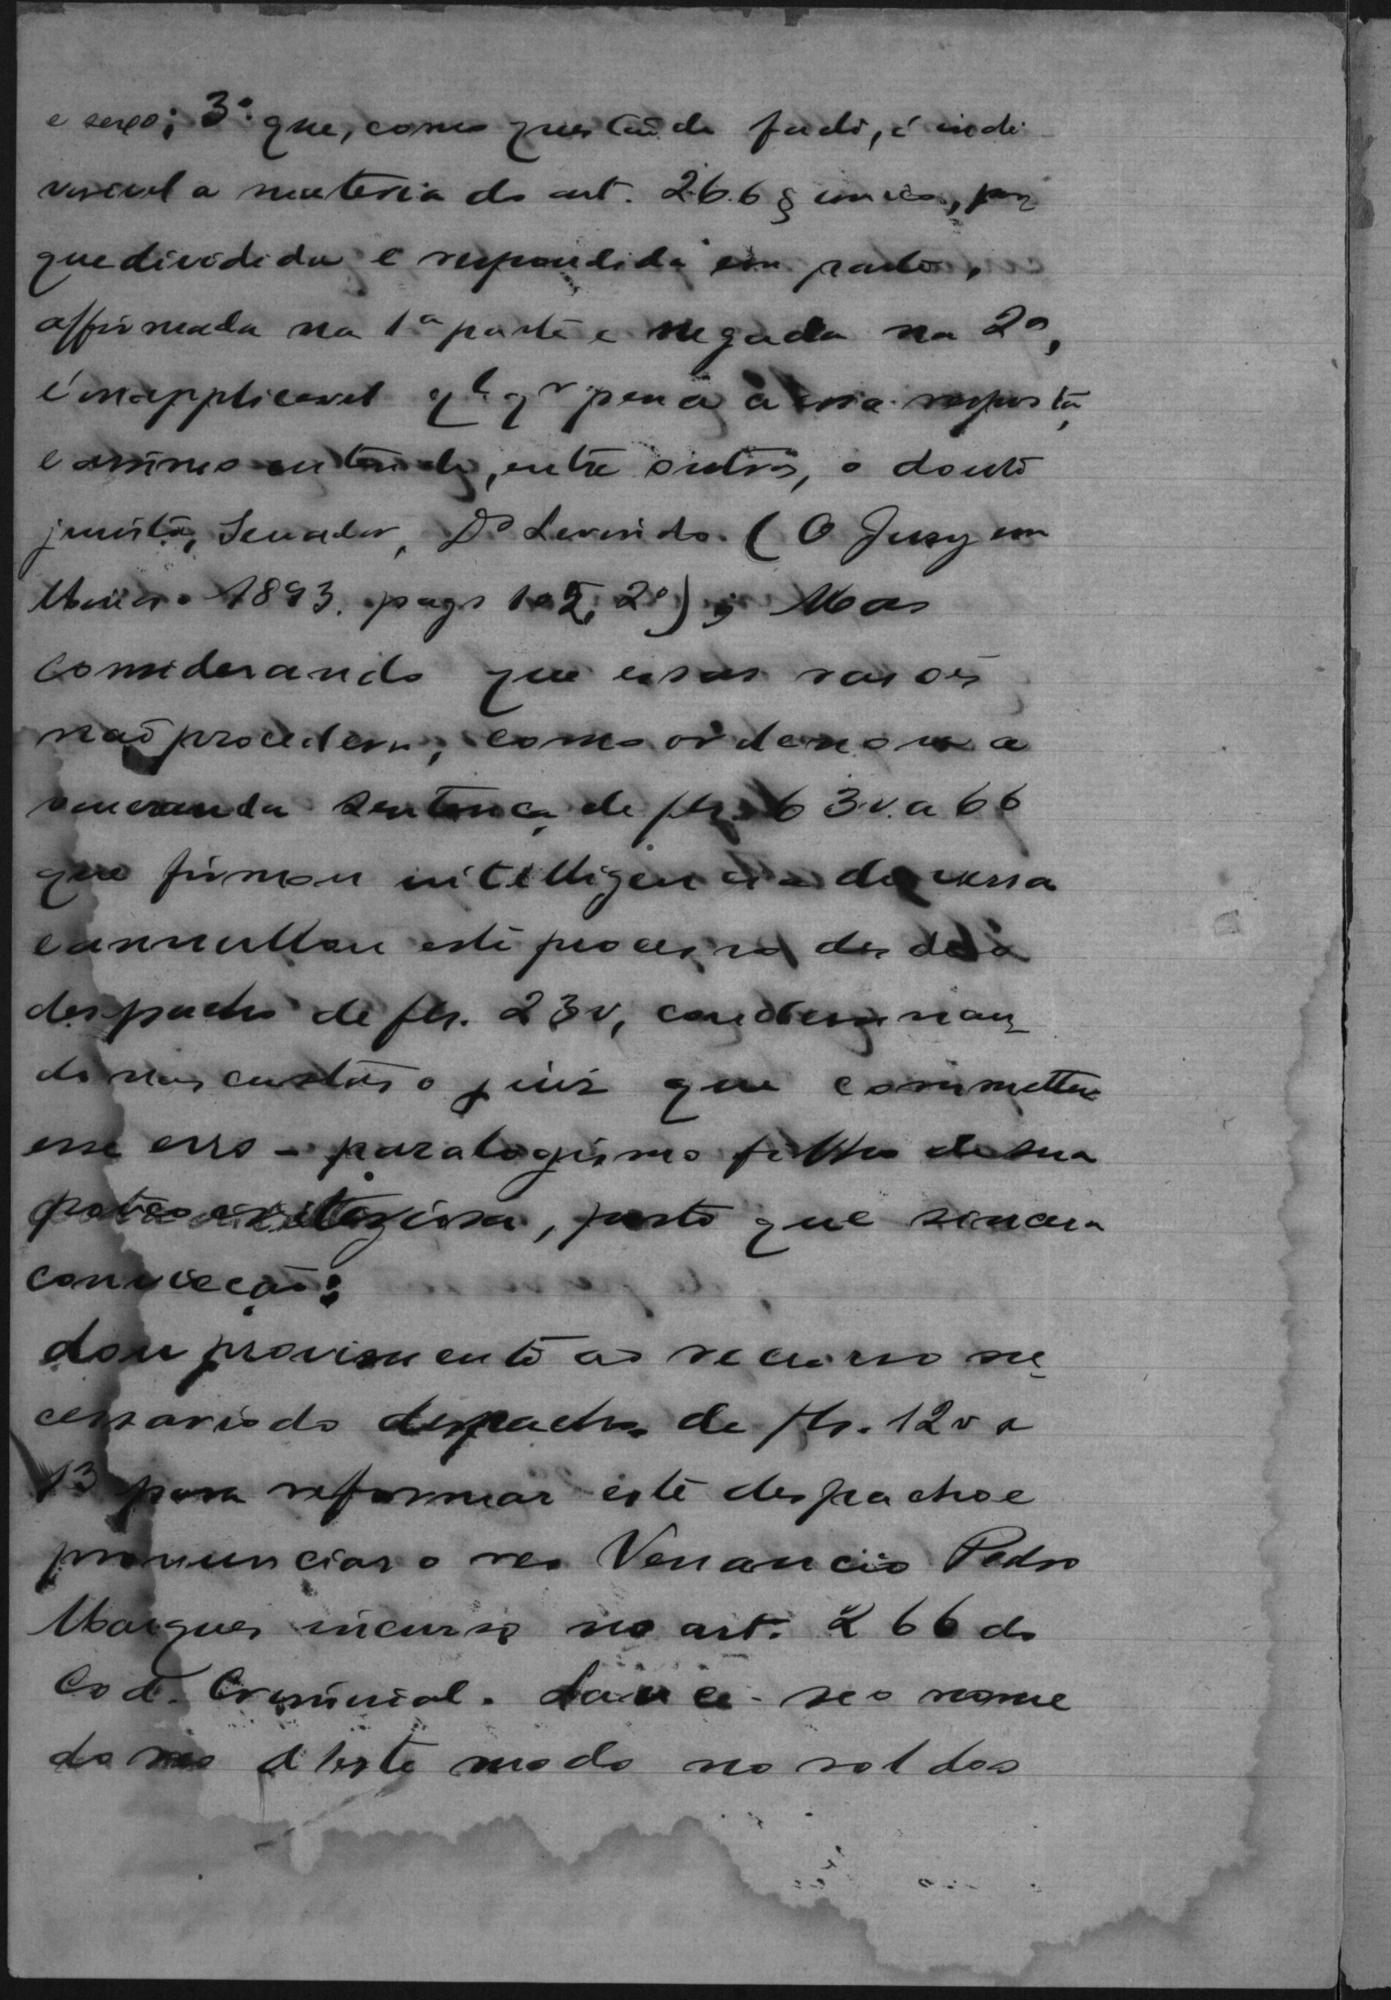 e sexo; 3º que, como questão de facto, é indi
visivel a materia do art. 266 § unico, por
que dividida e respondida em parte,
affirmada na 1ª parte e negada na 2ª,
é inapplicavel qlqr pena à essa resposta,
e assim o entende, entre outros, o douto
jurista, Senador, Dº Levindo. (O Jury em
Minas. 1893. pags 102, 2º); Mas
considerando que essas rasões
não procedem, como ordenou a
veneranda sentença de fls. 63v. a 66
que firmou intelligencia diversa
e annullou este processo desde o
despacho de fls. 23v, condemnan
do nas custas o juiz que commetteu
esse erro - paralogismo filho de sua
posto que sincera
convicção:
dou provimento ao recurso ne
cessario do despacho de fls. 12v a
13 para reformar este despacho e
pronunciar o reo Venancio Pedro
Marques incurso no art. 266 do
Cod. Criminal. Lance-se o nome
do reo d'este modo no rol dos